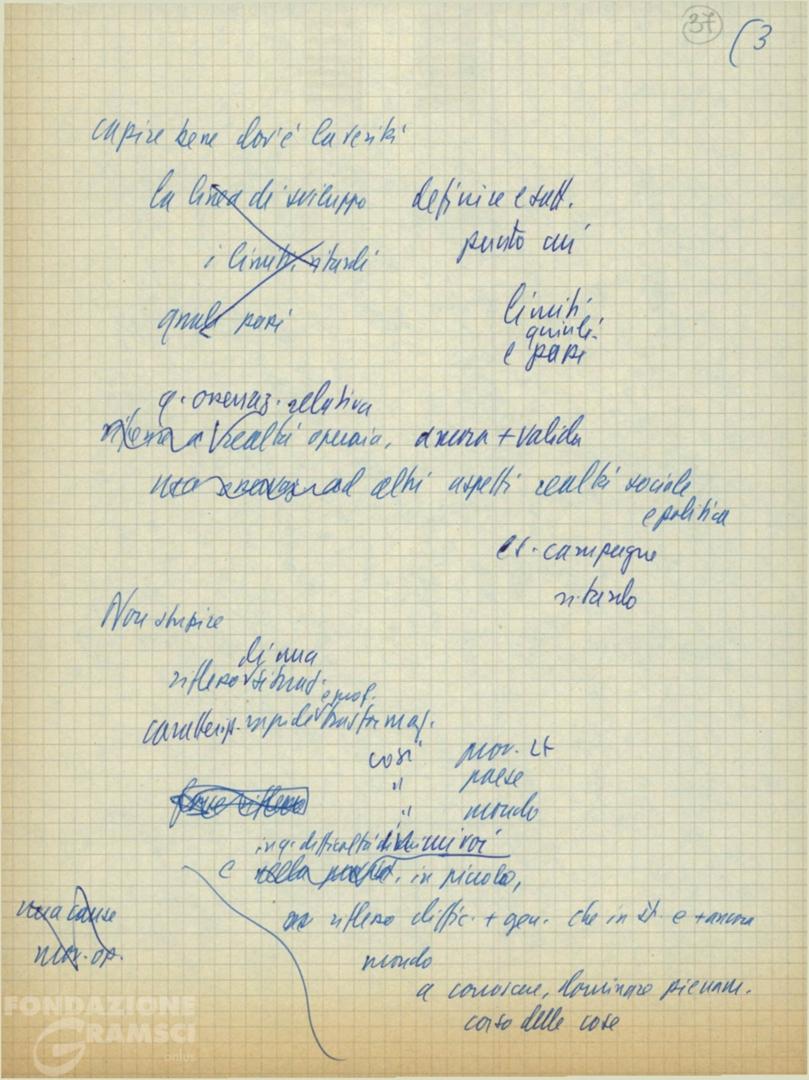 37
(3
capire bene dov'è la verità
la linea di sviluppo definire esatt.
i limiti, ritardi punto cui
quali passi
limiti
quindi
e passi
q. osservaz. relativa
a realtà operaia, ancora + valida
ad altri aspetti realtà sociale
e politica
es. campagne
ritardo
Non stupire
di una
riflesso situaz.
e prof.
caratteriz. rapide trasformaz.
così mov. it
" paese
" mondo
in q. difficoltà di
e in piccolo,
riflesso diffic. + gen. che in It. e + ancora
una cause
mov. op.
mondo
a conoscere, dominare pienam.
corso delle cose
FONDAZIONE
GRAMSCI
onlus